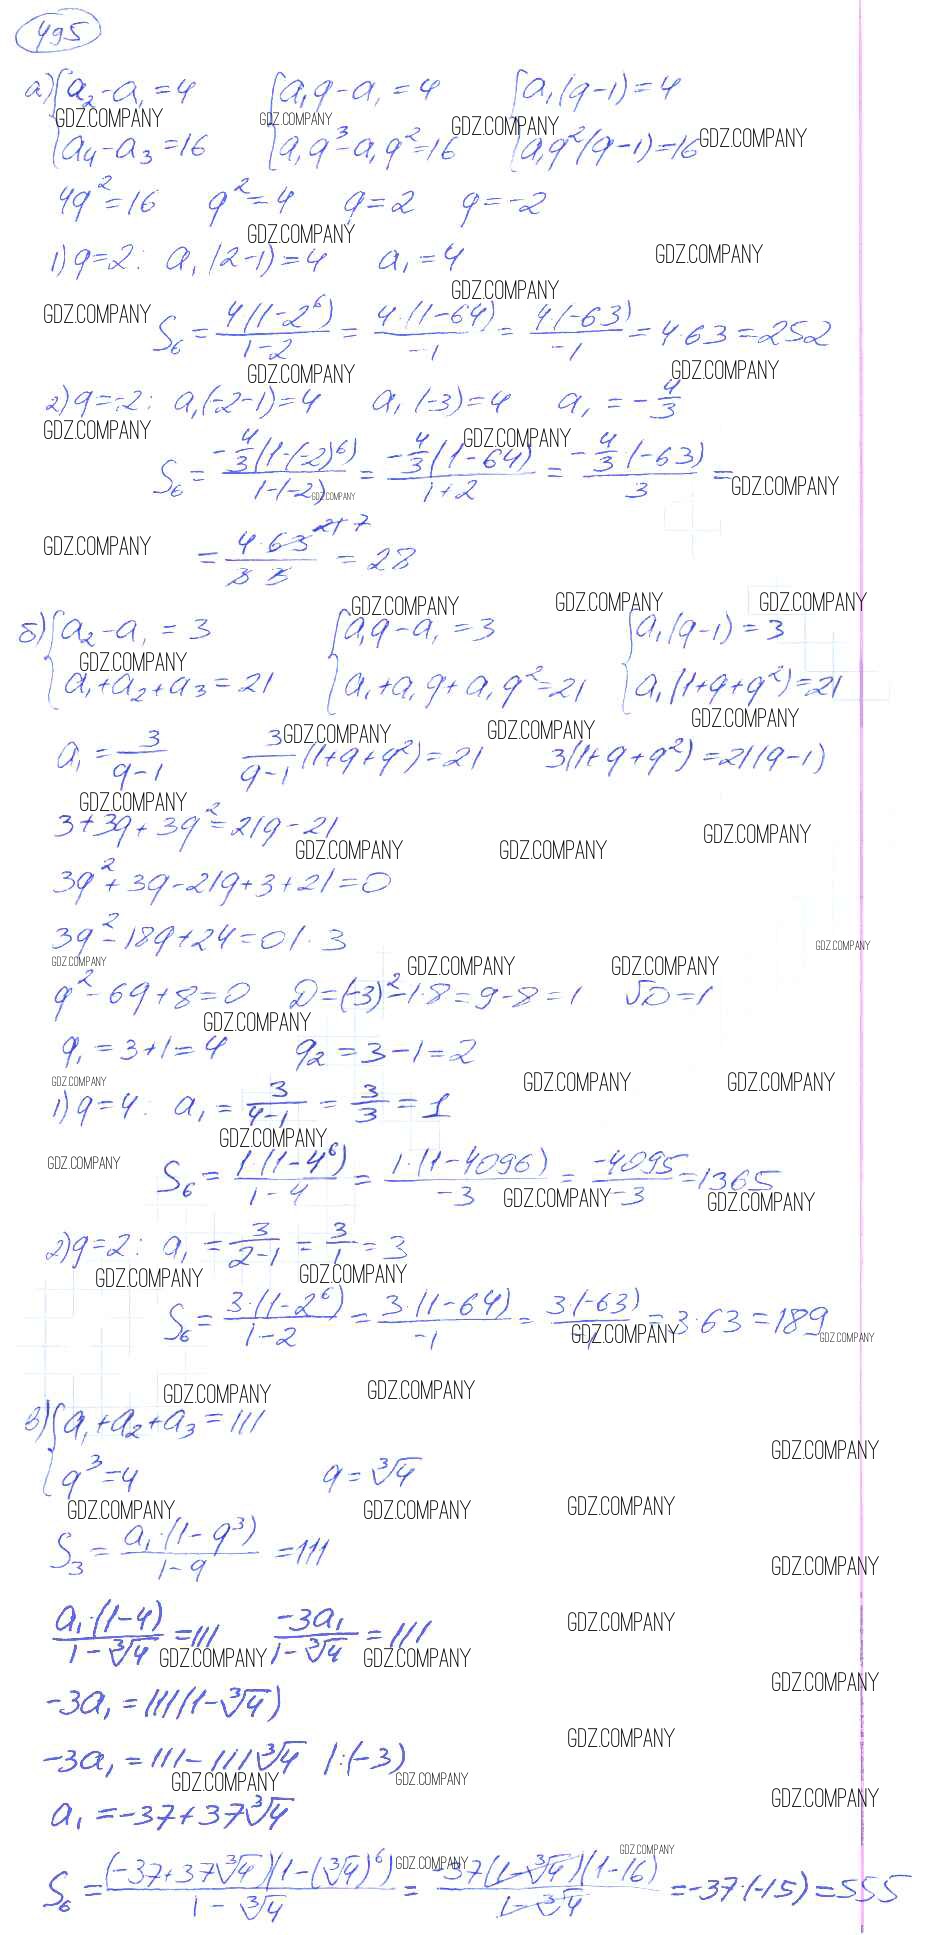 495
а) { a₂ - a₁ = 4   { a₁q - a₁ = 4   { a₁(q-1) = 4
{ a₄ - a₃ = 16   { a₁q³ - a₁q² = 16   { a₁q²(q-1) = 16
4q² = 16   q² = 4   q = 2   q = -2
1) q = 2: a₁(2-1) = 4   a₁ = 4
S₆ = 4(1-2⁶)/(1-2) = 4·(1-64)/(-1) = 4·(-63)/(-1) = 4·63 = 252
2) q = -2: a₁(-2-1) = 4   a₁(-3) = 4   a₁ = -4/3
S₆ = -4/3(1-(-2)⁶)/(1-(-2)) = -4/3(1-64)/(1+2) = -4/3(-63)/3 =
= 4·63 21 7/(3 3) = 28
б) { a₂ - a₁ = 3   { a₁q - a₁ = 3   { a₁(q-1) = 3
{ a₁ + a₂ + a₃ = 21   { a₁ + a₁q + a₁q² = 21   { a₁(1+q+q²) = 21
a₁ = 3/(q-1)   3/(q-1)(1+q+q²) = 21   3(1+q+q²) = 21(q-1)
3 + 3q + 3q² = 21q - 21
3q² + 3q - 21q + 3 + 21 = 0
3q² - 18q + 24 = 0 | · 3
q² - 6q + 8 = 0   D = (-3)² - 1·8 = 9 - 8 = 1   √D = 1
q₁ = 3+1 = 4   q₂ = 3-1 = 2
1) q = 4: a₁ = 3/(4-1) = 3/3 = 1
S₆ = 1·(1-4⁶)/(1-4) = 1·(1-4096)/(-3) = -4095/-3 = 1365
2) q = 2: a₁ = 3/(2-1) = 3/1 = 3
S₆ = 3·(1-2⁶)/(1-2) = 3·(1-64)/(-1) = 3(-63)/(-1) = 3·63 = 189
в) { a₁ + a₂ + a₃ = 111
{ q³ = 4   q = ³√4
S₃ = a₁·(1-q³)/(1-q) = 111
a₁·(1-4)/(1-³√4) = 111   -3a₁/(1-³√4) = 111
-3a₁ = 111(1-³√4)
-3a₁ = 111 - 111³√4 | :(-3)
a₁ = -37 + 37³√4
S₆ = (-37+37³√4)(1-(³√4)⁶)/(1-³√4) = -37(1-³√4)(1-16)/(1-³√4) = -37·(-15) = 555
GDZ.COMPANY